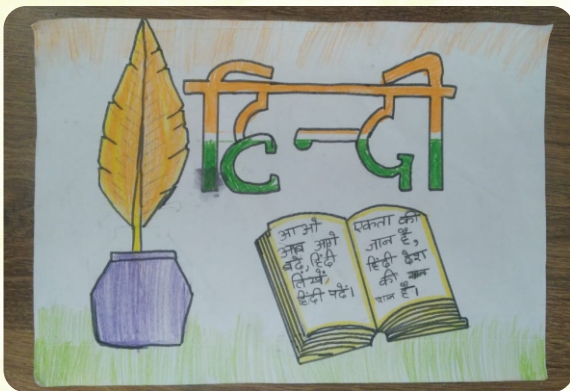 हिन्दी
आओ
आब आगे
बढ़ें, हिंदी
लिखें,
हिंदी पढें।
एकता की
जान है,
हिंदी देश
की
शान है।